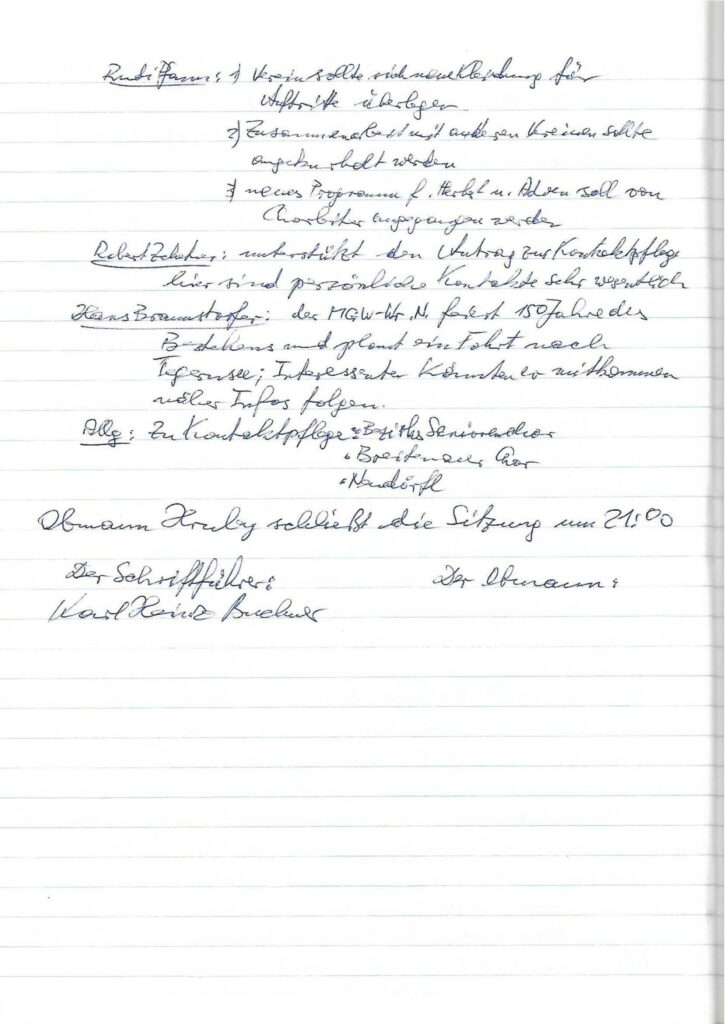 Rudi Pfann: 1) Verein sollte sich neue Kleidung für
Auftritte überlegen
2) Zusammenarbeit mit anderen Vereinen sollte
angekurbelt werden
3) neues Programm f. Herbst u. Adven soll von
Chorleiter angegangen werden
Robert: unterstützt den Antrag zur Kontaktpflege
hier sind persönliche Kontakte sehr wesentlich
Hans Braunstorfer: der MGV-Wr. N. feiert 150 Jahre des
Bestehens und plant ein Fahrt nach
Tegernsee; Interessenten könnten mitkommen
näher Infos folgen.
Allg: Zu Kontaktpflege: • Bezirks Seniorenchor
• Breitenauer Chor
• Neudörfl
Obmann Hruby schließt die Sitzung um 21:00
Der Schriftführer: Der Obmann:
Karl Heinz Buchner